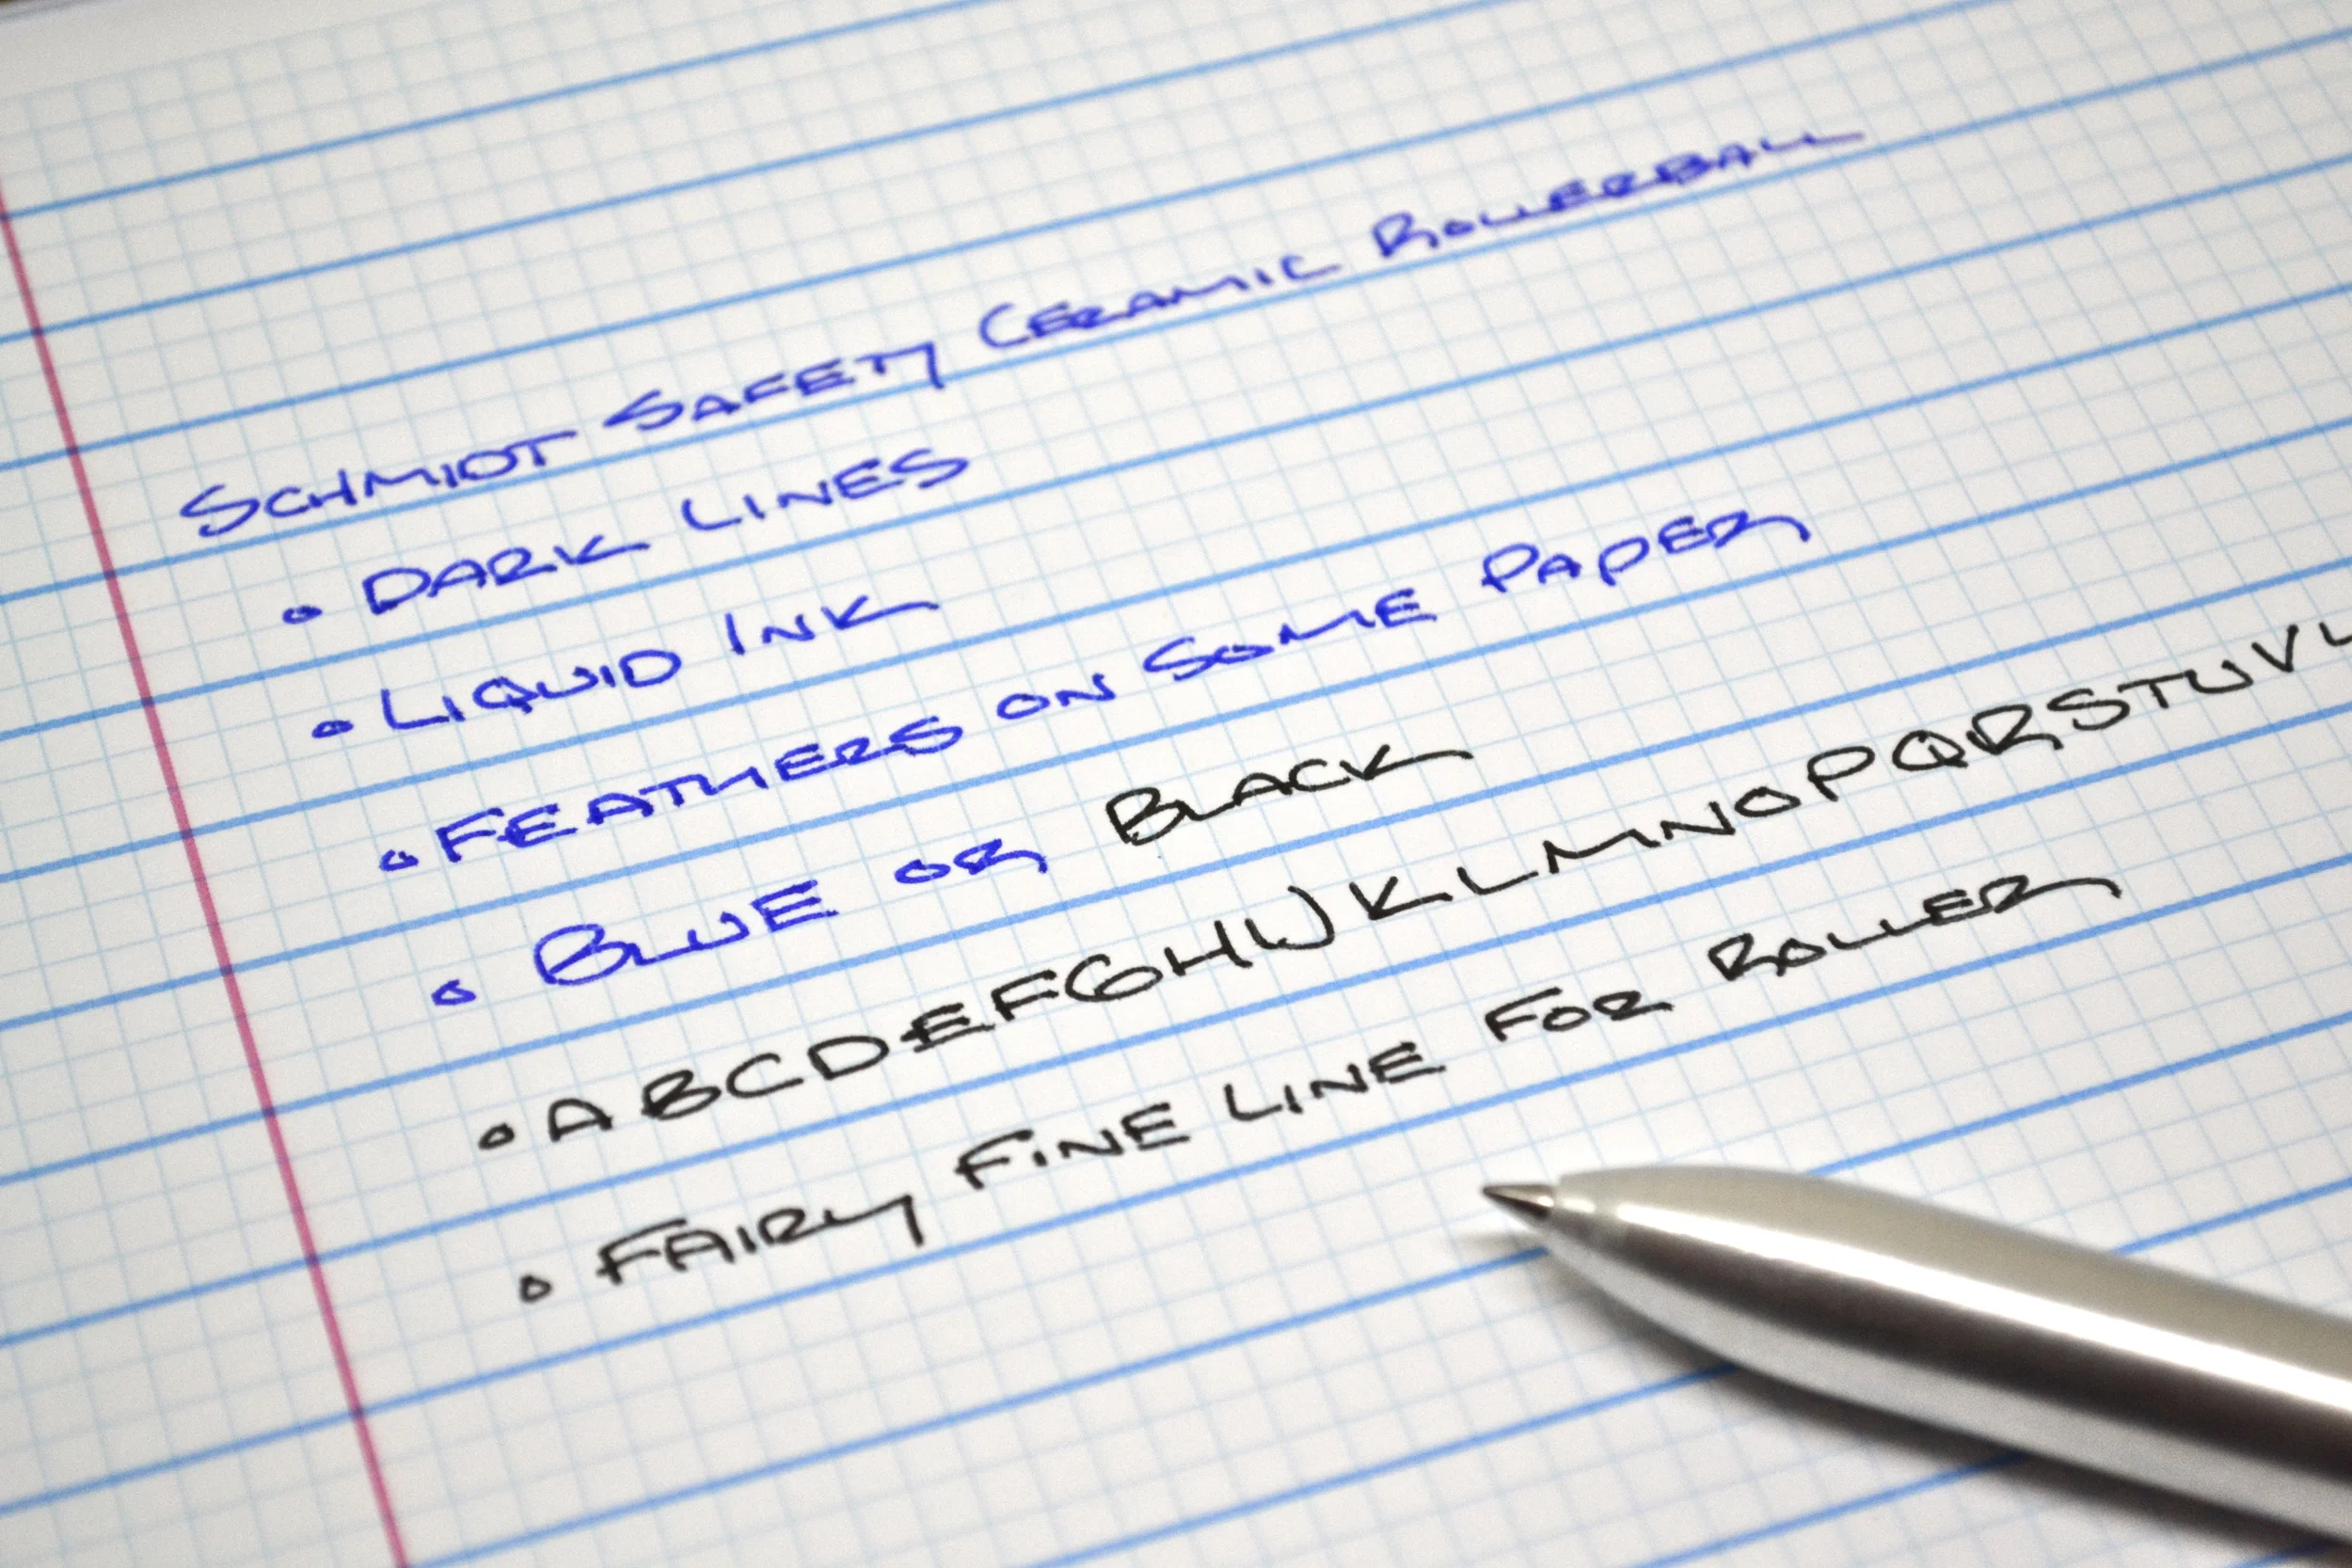 SCHMIDT SAFETY CERAMIC ROLLERBALL
• DARK LINES
• LIQUID INK
• FEATHERS ON SOME PAPER
• BLUE OR BLACK
• ABCDEFGHIJKLMNOPQRSTUV
• FAIRLY FINE LINE FOR ROLLER